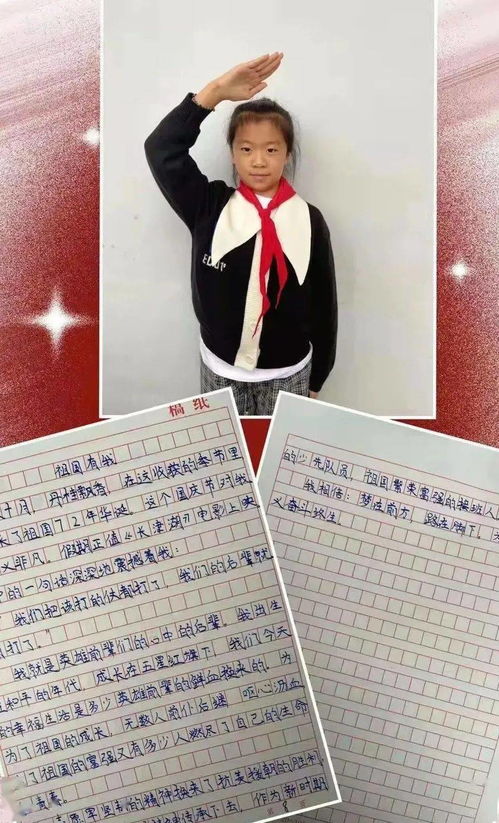 稿纸
祖国有我
十月，丹桂飘香，在这收获的季节里
来了祖国72年华诞。这个国庆节对我
义非凡。假期正值《长津湖》电影上映
的一句话深深地震撼着我：
我们把该打的仗都打了，我们的后辈就
打了。”
我就是英雄前辈们的心中的后辈。我出生
和平的年代，成长在五星红旗下，我们今天
的幸福生活是多少英雄前辈的鲜血换来的。为
为了祖国的成长，无数人前仆后继，呕心沥血
了祖国的富强又有多少人燃尽了自己的生命
青春。
坚的精神换来了抗美援朝的胜利，
承下去，作为新时期
的少先队员，祖国繁荣富强的接班人
我相信：梦在前方，路在脚下。为
义奋斗终生。